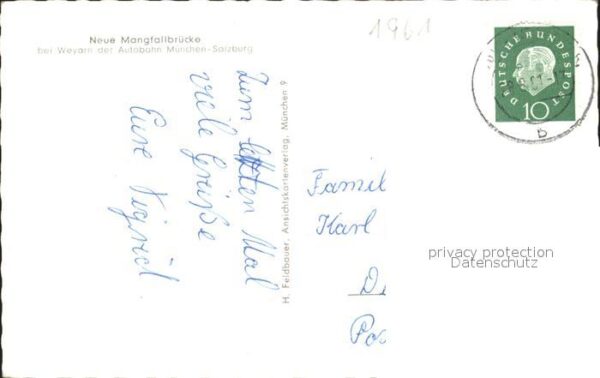 Neue Mangfallbrücke
bei Weyarn der Autobahn München-Salzburg
1961
DEUTSCHE BUNDESPOST
10
b
Zum letzten Mal
viele Grüße
Eure
H. Feldbauer, Ansichtskartenverlag, München 9
Famil
Karl
D.
Pos
privacy protection
Datenschutz